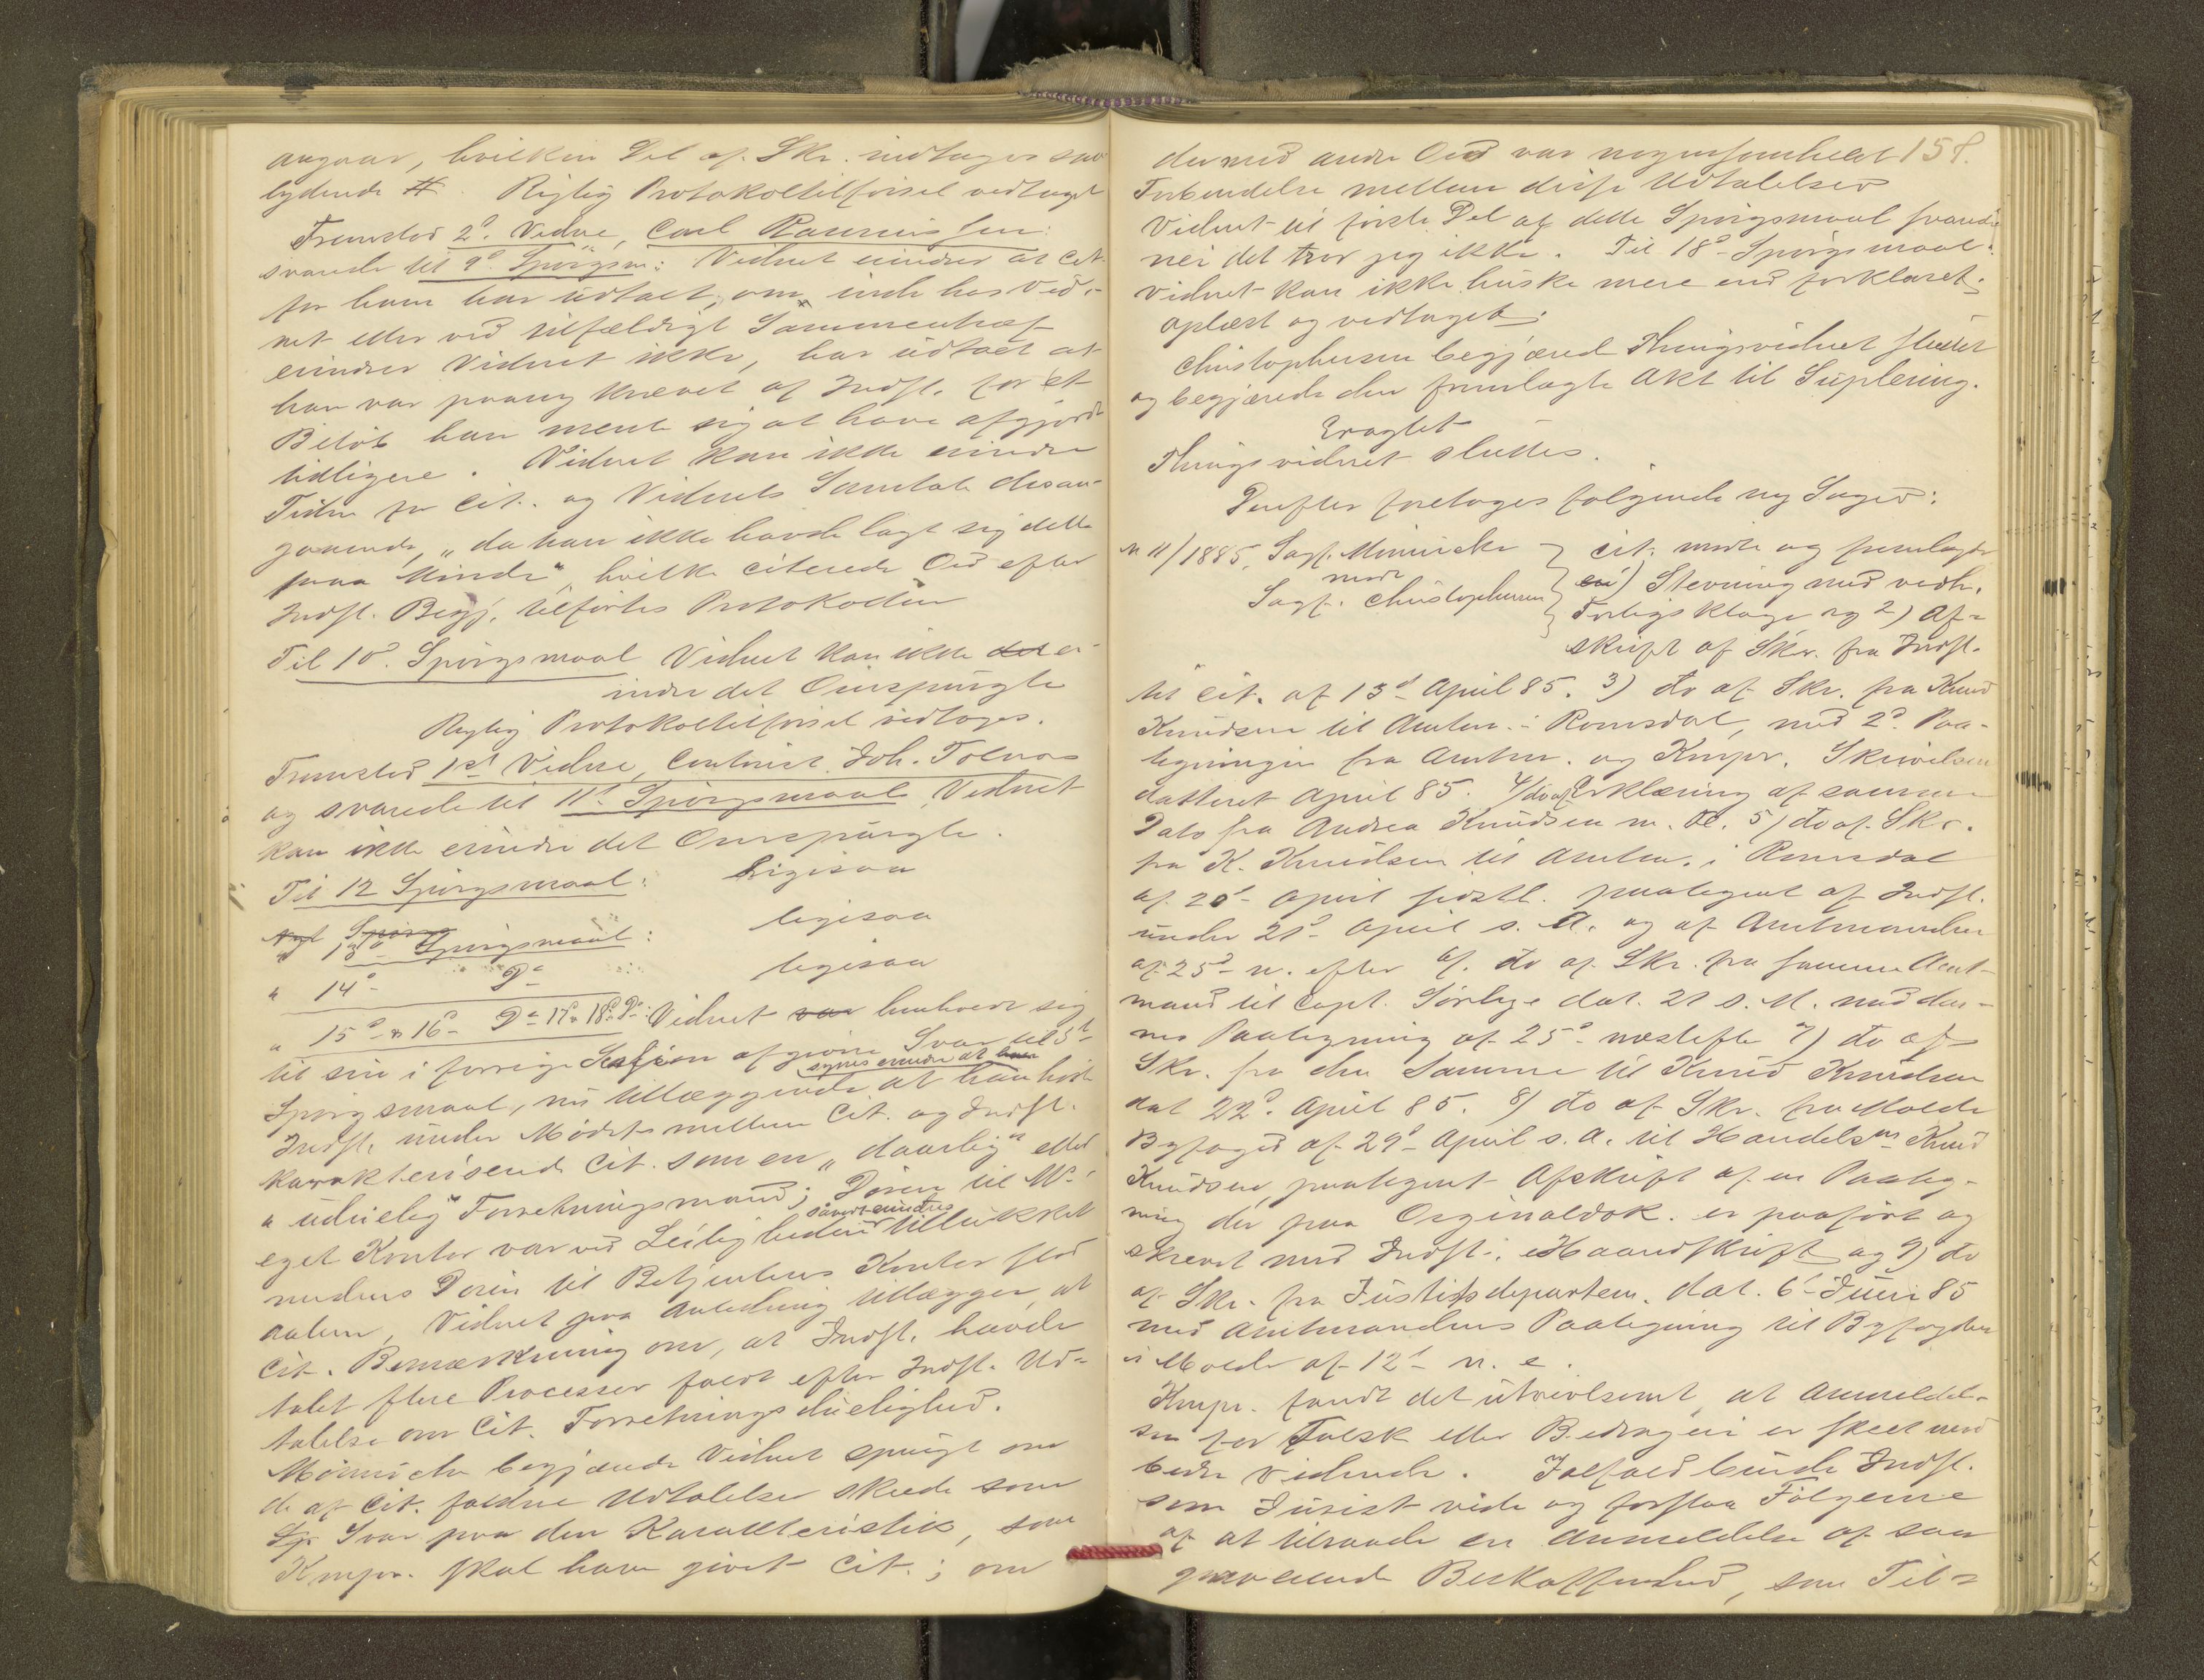 angaar, hvilken Del af Skr. indtages saa
lydende #. Rigtig Protokoltilførsel vedtaget
Fremstod 2d. Vidne, Carl Rasmussen:
svarede til 9d Spørgsm: Vidnet erindrer at Cit.
for ham har udtalt, om inde hos Vid-
net eller ved tilfældigt Sammentræf
erindrer Vidnet ikke, har udtalt at
han var paany krævet af Indst. for et
Beløb han mente sig at have afgjordt
tidligere. Vidnet kan ikke erindre
Tiden for Cit. og Vidnets Samtale desan-
gaaende, "da han ikke havde lagt sig dette
paa Minde", hvilke citerede Ord efter
Indst. Begj. tilførtes Protokollen
Til 10d. Spørgsmaal Vidnet kan ikke det er-
indre det Omspurgte
Rigtig Protokoltilførsel vedtoges.
Fremstod 1st Vidne, Contorist Joh. Tolnæs
og svarede til 11d. Spørgsmaal Vidnet
kan ikke erindre det Omspurgte.
Til 12 Spørgsmaal: Ligesaa
Spørg
" 13d Spørgsmaal: ligesaa
" 14d - Do ligesaa
" 15d - & 16d - Do 17d 18d Do: Vidnet var henholdt sig
til sin i forrige Session afgivne Svar til 5d
synes erindre at han
Spørgsmaal, nu tillæggende at han hørte
Indst. under Mødet mellem Cit. og Indst.
karakteriserede Cit. som en "daarlig" eller
"uduelig" Forretningsmand; Døren til M's
saavidt erindres
eget Kontor var ved Leiligheden tillukket
medens Døren til Betjentens Kontor stod
aaben, Vidnet paa Anledning tillægger, at
Cit. Bemærkning om, at Indst. havde
tabt flere Processer faldt efter Indst. Ud-
talelse om Cit. Forretningsduelighed.
Mørnichs begjærede Vidnet spurgt om
de af Cit. faldne Udtalelser skede som
Sp Svar paa den Karakteristik, som
Kmpr. skal have givet Cit.; om
der med andre Ord var nogensomhelst 158.
Forbindelse mellem disse Udtalelser
Vidnet til første Del af dette Spørgsmaal svarede
nei det tror jeg ikke. Til 18d - Spørgsmaal:
Vidnet kan ikke huske mere end forklaret.
Oplæst og vedtaget.
Christophersen begjærede Thingsvidnet sluttet
og begjærede den fremlagte Akt til Suplering.
Eragtet
Thingsvidnet sluttes.
Derefter foretoges følgende ny Sager:
N 11/1885. Sagf. Minuche
mod
Sagf. Christophersen
Cit. mødte og fremlagde
en 1) Stevning med vedh.
Forligsklage og 2) Af-
skrift af Skr. fra Indst.
til Cit. af 13d April 85. 3) do af Skr. fra Knud
Knudsen til Amtm. i Romsdal, med 2d Paa-
tegninger fra Amtm. og Kmpr. Skrivelsen
datteret April 85. 4/ do af Erklæring af samme
Dato fra Andrea Knudsen m. Fl. 5/ do af Skr.
fra K. Knudsen til Amtm. i Romsdal
af 20d - April sidstl. paategnet af Indst.
under 21d - April s. A. og af Amtmanden
af 25d - n. efter 6/. do af Skr. fra samme Amt-
mand til Capt. Sørlye dat. 21 s. M. med den-
nes Paategning af 25d næstefter 7) do af
Skr. fra den Samme til Knud Knudsen
dat 22d. April 85. 8/ do af Skr. fra Molde
Byfoged af 29d - April s. A. til Handelsm Knud
Knudsen, paategnet Afskrift af en Paateg-
ning der paa Orginaldok. er paaført og
skrevet med Indst. Haandskrift og 9) do
af Skr. fra Justitsdepartem. dat. 6d Juni 85
med Amtmandens Paategning til Byfogden
i Molde af 12d - n. e.
Kmpr. fandt det utvivlsomt, at Anmeldel-
sen for Falsk eller Bedrageri er skeet mod
bedre Vidende. Ialfald burde Indst.
som Jurist vide og forstaa Følgerne
af at tilraade en Anmeldelse af saa
graverende Beskaffenhed, som Til-